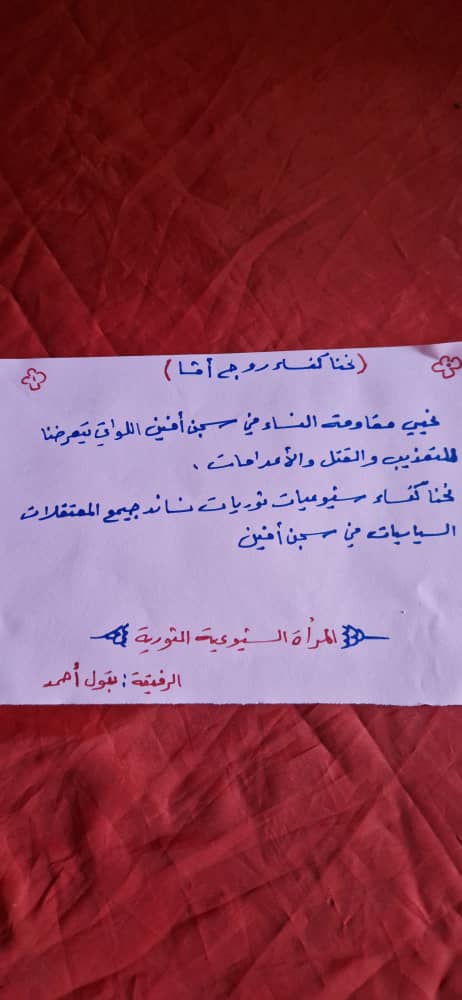 (نحنا كنساء روج آفا)
نحيي مقاومة النساء في سجن أفين اللواتي يتعرضنا
للتعذيب والقتل والأعدامات .
نحنا كنساء شيوعيات ثوريات نساند جيمع المعتقلات
السياسيات في سجن أفين
المرأة الشيوعية الثورية
الرفيقة : بتول أحمد